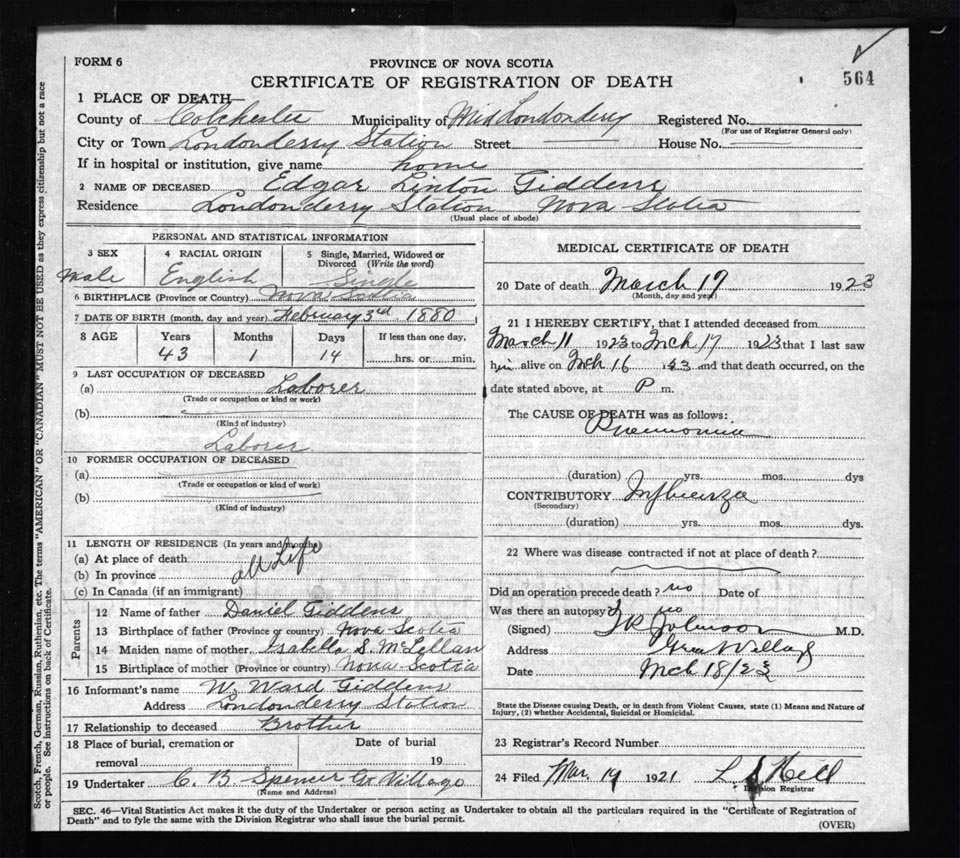 564
FORM 6
PROVINCE OF NOVA SCOTIA
CERTIFICATE OF REGISTRATION OF DEATH
1 PLACE OF DEATH—
County of Colchester Municipality of West Londonderry Registered No.
(For use of Registrar General only)
City or Town Londonderry Station Street House No.
If in hospital or institution, give name home
2 NAME OF DECEASED Edgar Linton Giddens
Residence Londonderry Station Nova Scotia
(Usual place of abode)
PERSONAL AND STATISTICAL INFORMATION
3 SEX 4 RACIAL ORIGIN 5 Single, Married, Widowed or Divorced (Write the word)
Male English Single
6 BIRTHPLACE (Province or Country) Nova Scotia
7 DATE OF BIRTH (month, day and year) February 3rd 1880
8 AGE Years Months Days If less than one day,
43 1 14 hrs. or min.
9 LAST OCCUPATION OF DECEASED
(a) Laborer
(Trade or occupation or kind or work)
(b)
(Kind of industry)
Laborer
10 FORMER OCCUPATION OF DECEASED
(a)
(Trade or occupation or kind of work)
(b)
(Kind of industry)
11 LENGTH OF RESIDENCE (In years and months)
(a) At place of death
(b) In province all Life
(c) In Canada (if an immigrant)
Parents
12 Name of father Daniel Giddens
13 Birthplace of father (Province or country) Nova Scotia
14 Maiden name of mother. Isabella S. McLellan
15 Birthplace of mother (Province or country) Nova Scotia
16 Informant's name W. Ward Giddens
Address Londonderry Station
17 Relationship to deceased Brother
18 Place of burial, cremation or Date of burial
removal 19
19 Undertaker C. B. Spencer Gt Village
(Name and Address)
MEDICAL CERTIFICATE OF DEATH
20 Date of death March 17 1923
(Month, day and year)
21 I HEREBY CERTIFY, that I attended deceased from
March 11 1923 to Mch 17 1923 that I last saw
him alive on Mch 16 23 and that death occurred, on the
date stated above, at P m.
The CAUSE OF DEATH was as follows:
Pneumonia
(duration) yrs. mos. dys
CONTRIBUTORY Influenza
(Secondary)
(duration) yrs. mos. dys.
22 Where was disease contracted if not at place of death?
Did an operation precede death? no Date of
Was there an autopsy? no
(Signed) Johnson M.D.
Address Great Village
Date Mch 18/23
State the Disease causing Death, or in death from Violent Causes, state (1) Means and Nature of
Injury, (2) whether Accidental, Suicidal or Homicidal.
23 Registrar's Record Number
24 Filed Mar 19 1921 Hill
Division Registrar
SEC. 46—Vital Statistics Act makes it the duty of the Undertaker or person acting as Undertaker to obtain all the particulars required in the "Certificate of Registration of
Death" and to fyle the same with the Division Registrar who shall issue the burial permit.
(OVER)
Scotch, French, German, Russian, Ruthenian, etc. The terms "AMERICAN" OR "CANADIAN" MUST NOT BE USED as they express citizenship but not a race
or people. See instructions on back of Certificate.